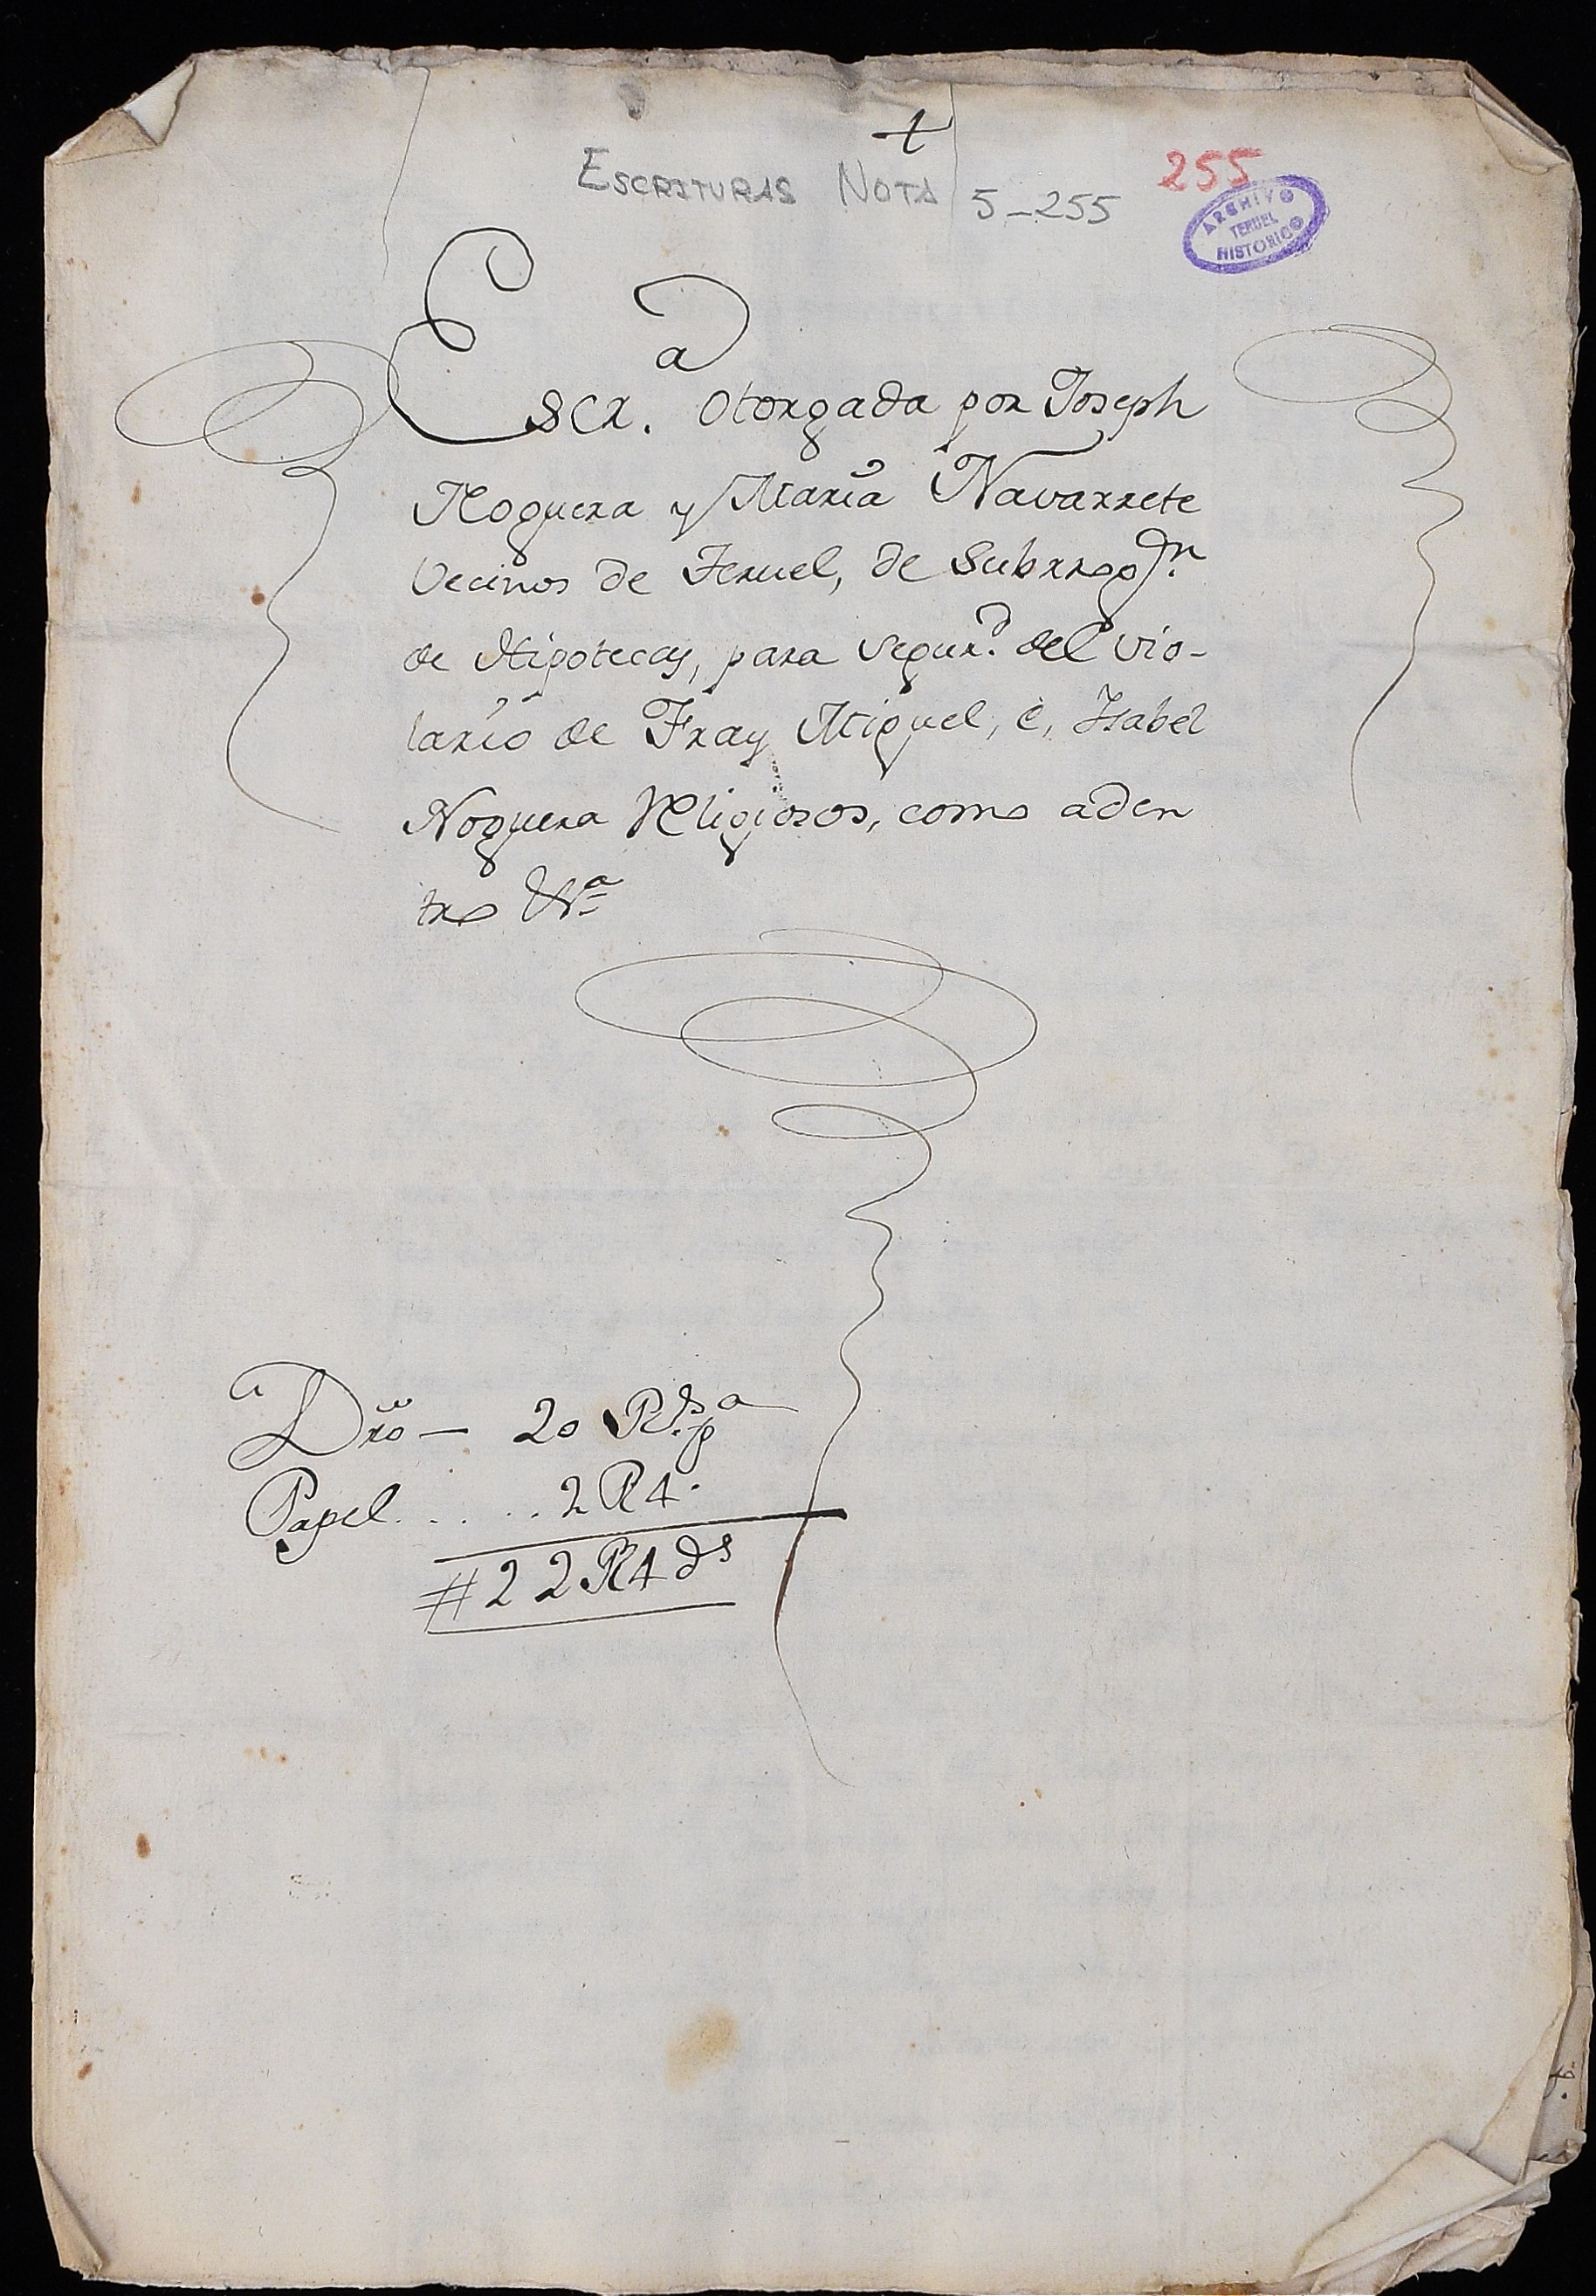 +
ESCRITURAS NOTA 5-255
255
ARCHIVO
TERUEL
HISTORICO
Escr.ª otorgada por Joseph
Noguera y Maria Navarrete
Vecinos de Teruel, de Subrrog.n
de Hipotecas, para segur.d del vio-
lario de Fray Miguel, è, Isabel
Noguera Religiosos, como aden
tro
Dro — 20 R.s pª
Papel . . . . . . 2 R 4.
# 22 R 4 ds